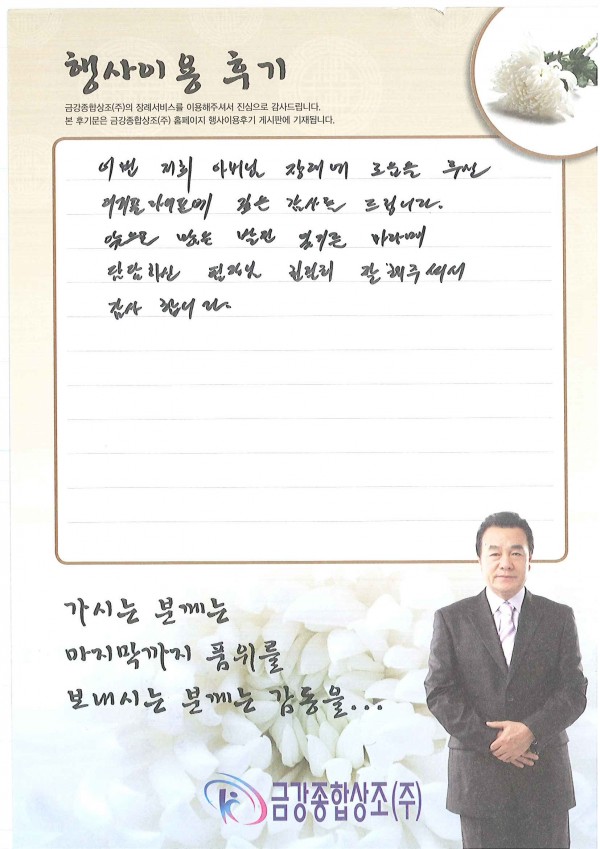 행사이용 후기
금강종합상조(주)의 장례서비스를 이용해주셔서 진심으로 감사드립니다.
본 후기문은 금강종합상조(주) 홈페이지 행사이용후기 게시판에 기재됩니다.
이번 저희 아버님 장례에 도움을 주신
깊은 감사를 드립니다.
앞으로 많은 발전 있기를 바라며
담당하신 팀장님 친절히 잘 해주셔서
감사 합니다.
가시는 분께는
마지막까지 품위를
보내시는 분께는 감동을...
금강종합상조(주)